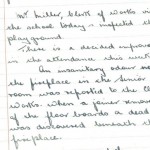 Mr Miller, Clerk of Works vis
the school today & inspected th
playground.
There is a decided improve
in the attendance this week
An insanitary odour nea
the fireplace in the Senior
room was reported to the Cl
Works. When a joiner remov
of the floor boards a dead
was discovered beneath th
fireplace.